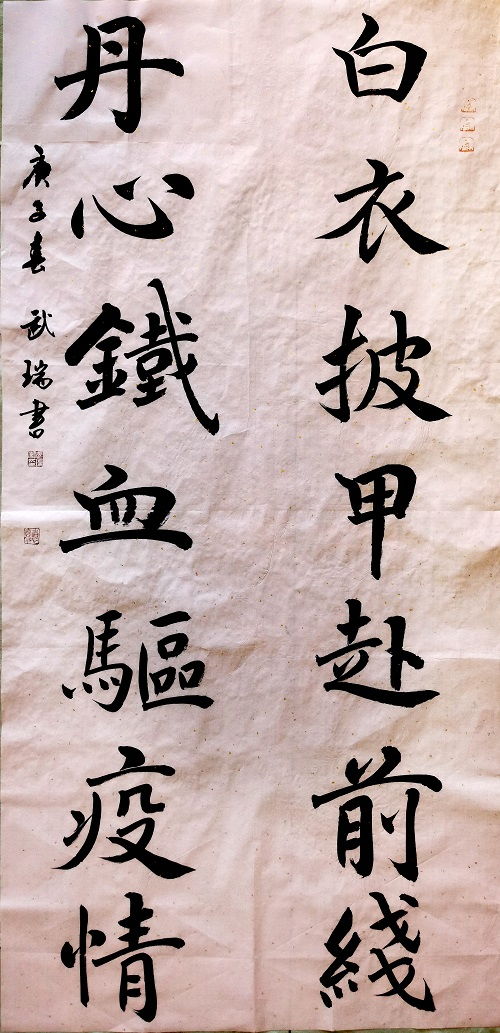 白衣披甲赴前綫
丹心鐵血驅疫情
庚子春 武瑞書